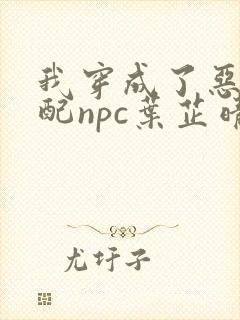 我穿成了惡
配npc葉芷晴
尤圩子